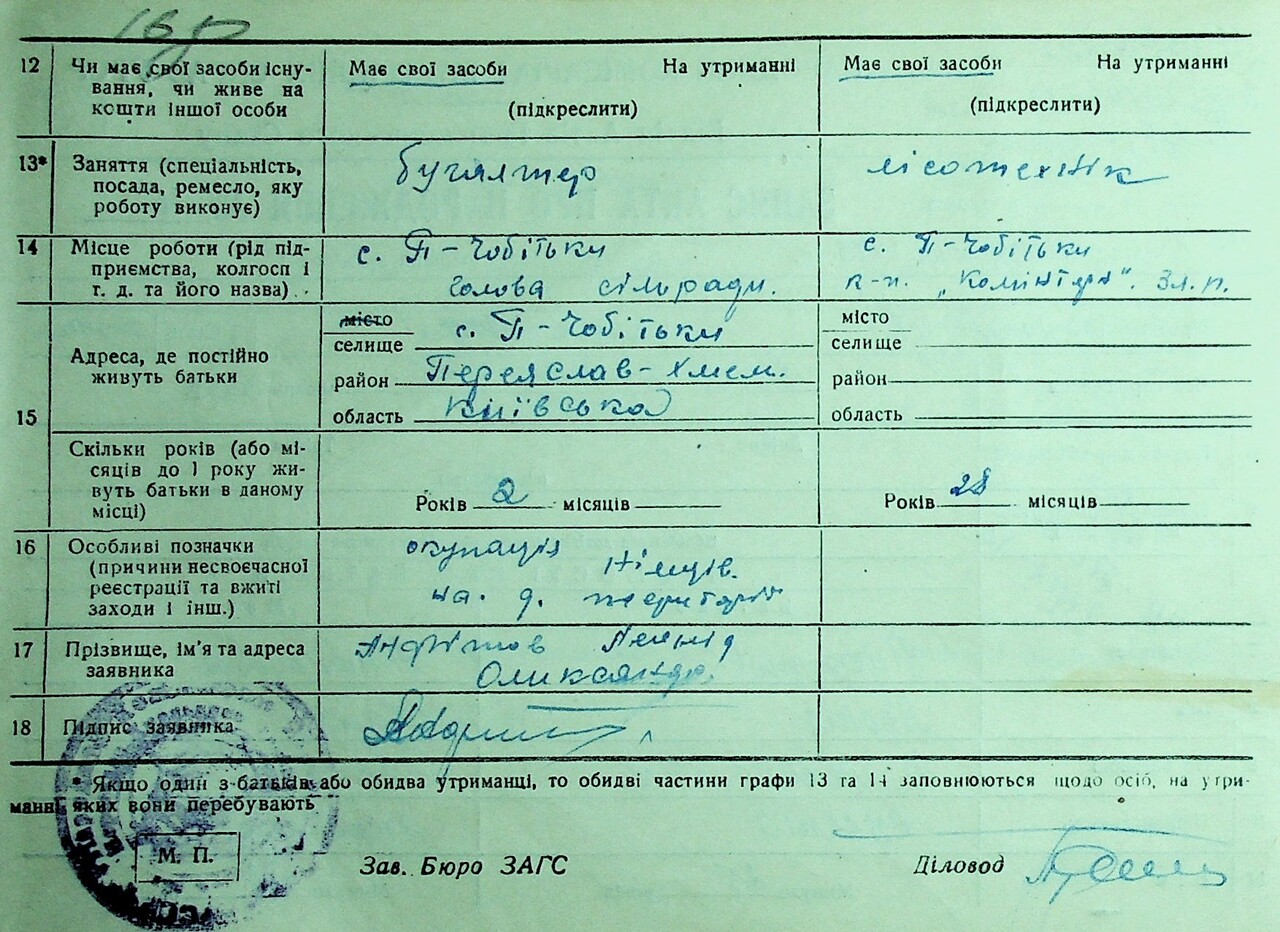 12 Чи має свої засоби існу-
вання, чи живе на
кошти іншої особи
Має свої засоби На утриманні
(підкреслити)
Має свої засоби На утриманні
(підкреслити)
13* Заняття (спеціальність,
посада, ремесло, яку
роботу виконує)
бугалтер
лісотехнік
14 Місце роботи (рід під-
приємства, колгосп і
т. д. та його назва)
с. П-Чобітьки
голова сільради.
с. П-Чобітьки
к-п. „Комінтерн". Зл. п.
15 Адреса, де постійно
живуть батьки
місто
селище с. П-Чобітьки
район Переяслав-Хмел.
область Київська
місто
селище
район
область
Скільки років (або мі-
сяців до 1 року жи-
вуть батьки в даному
місці)
Років 2 місяців
Років 28 місяців
16 Особливі позначки
(причини несвоєчасної
реєстрації та вжиті
заходи і інш.)
окупація німців.
на. д. територія
17 Прізвище, ім'я та адреса
заявника
Леонід
Олександр.
18 Підпис заявника
* Якщо один з батьків або обидва утриманці, то обидві частини графи 13 та 14 заповнюються щодо осіб, на утри-
манні яких вони перебувають
М. П.
Зав. Бюро ЗАГС
Діловод